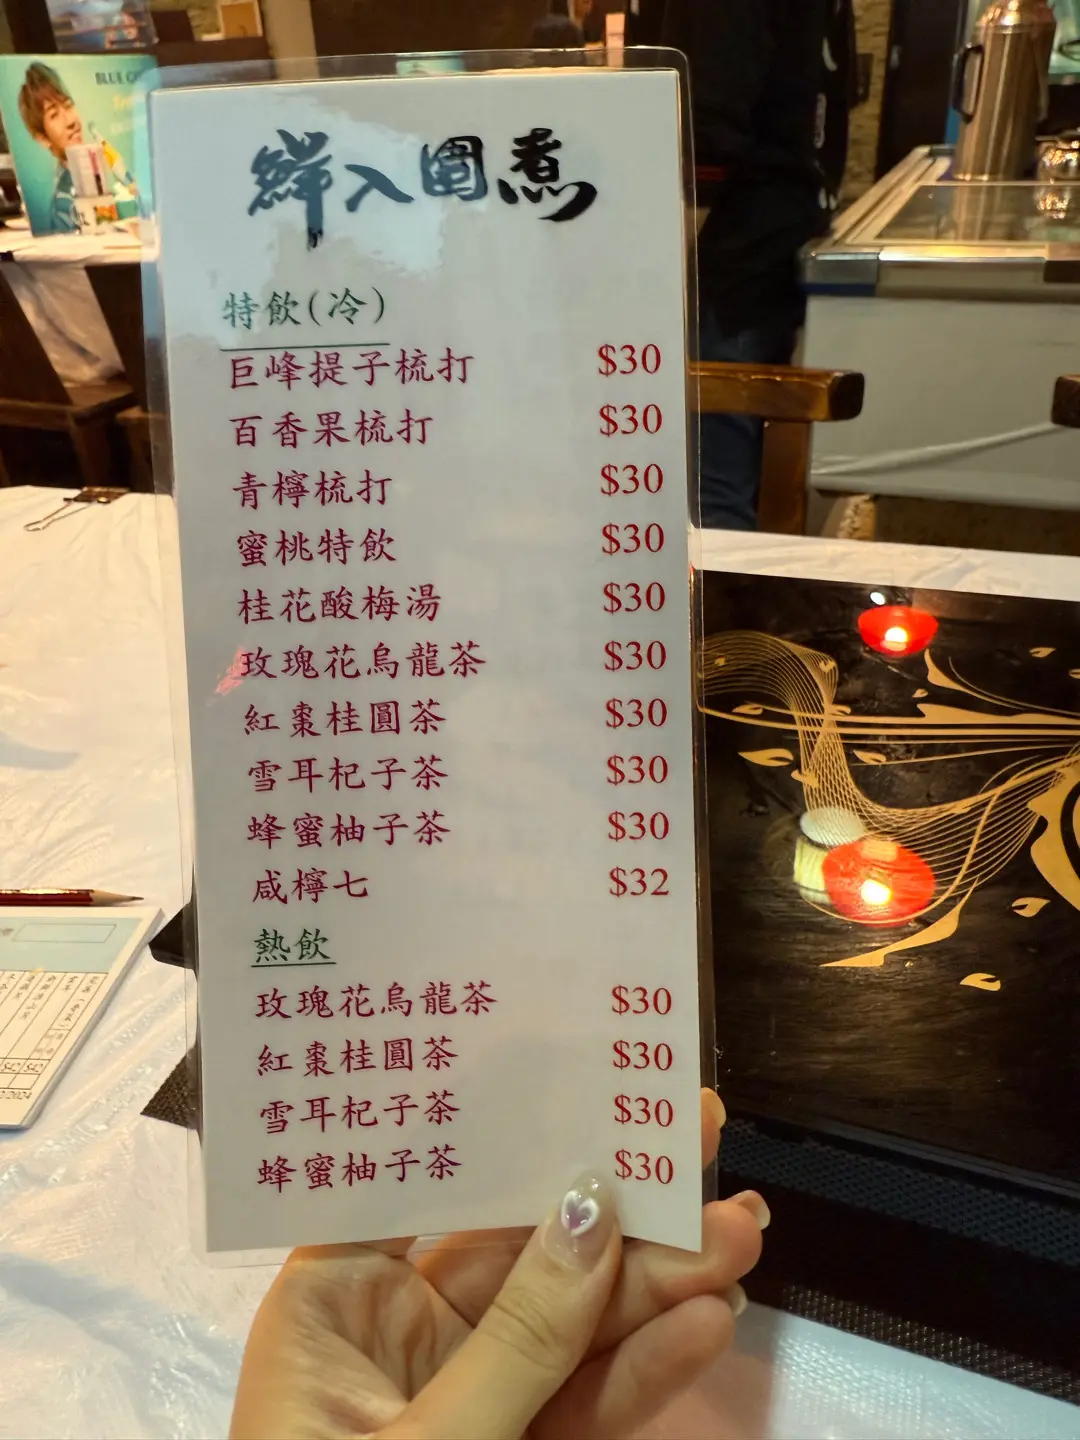 鮮入圍煮
特飲(冷)
巨峰提子梳打 $30
百香果梳打 $30
青檸梳打 $30
蜜桃特飲 $30
桂花酸梅湯 $30
玫瑰花烏龍茶 $30
紅棗桂圓茶 $30
雪耳杞子茶 $30
蜂蜜柚子茶 $30
咸檸七 $32
熱飲
玫瑰花烏龍茶 $30
紅棗桂圓茶 $30
雪耳杞子茶 $30
蜂蜜柚子茶 $30